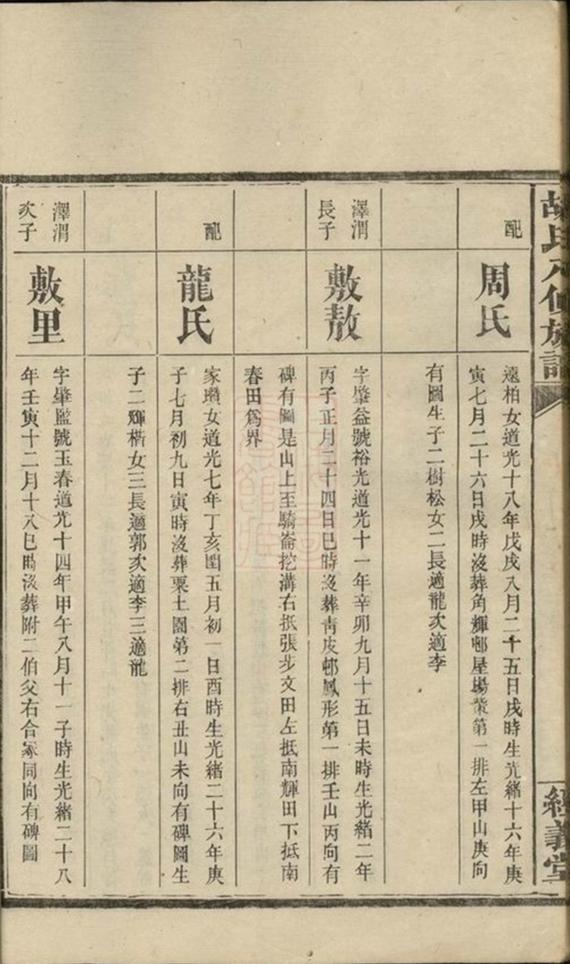 胡氏八修族譜
經義堂
配
周氏
遠柏女道光十八年戊戌八月二十五日戌時生光緒十六年庚
寅七月二十六日戌時沒葬角輝邨屋場背第一排左甲山庚向
有圖生子二樹松女二長適龍次適李
澤渭
長子
敷敖
字肇益號裕光道光十一年辛卯九月十五日未時生光緒二年
丙子正月二十四日巳時沒葬靑皮邨鳳形第一排壬山丙向有
碑有圖是山上至騎崙挖溝右抵張步文田左抵南輝田下抵南
春田爲界
配
龍氏
家瓚女道光七年丁亥閏五月初一日酉時生光緒二十六年庚
子七月初九日寅時沒葬栗土園第二排右丑山未向有碑圖生
子二輝楷女三長適郭次適李三適龍
澤渭
次子
敷里
字肇監號玉春道光十四年甲午八月十一子時生光緒二十八
年壬寅十二月十八巳時沒葬附二伯父右合冢同向有碑圖